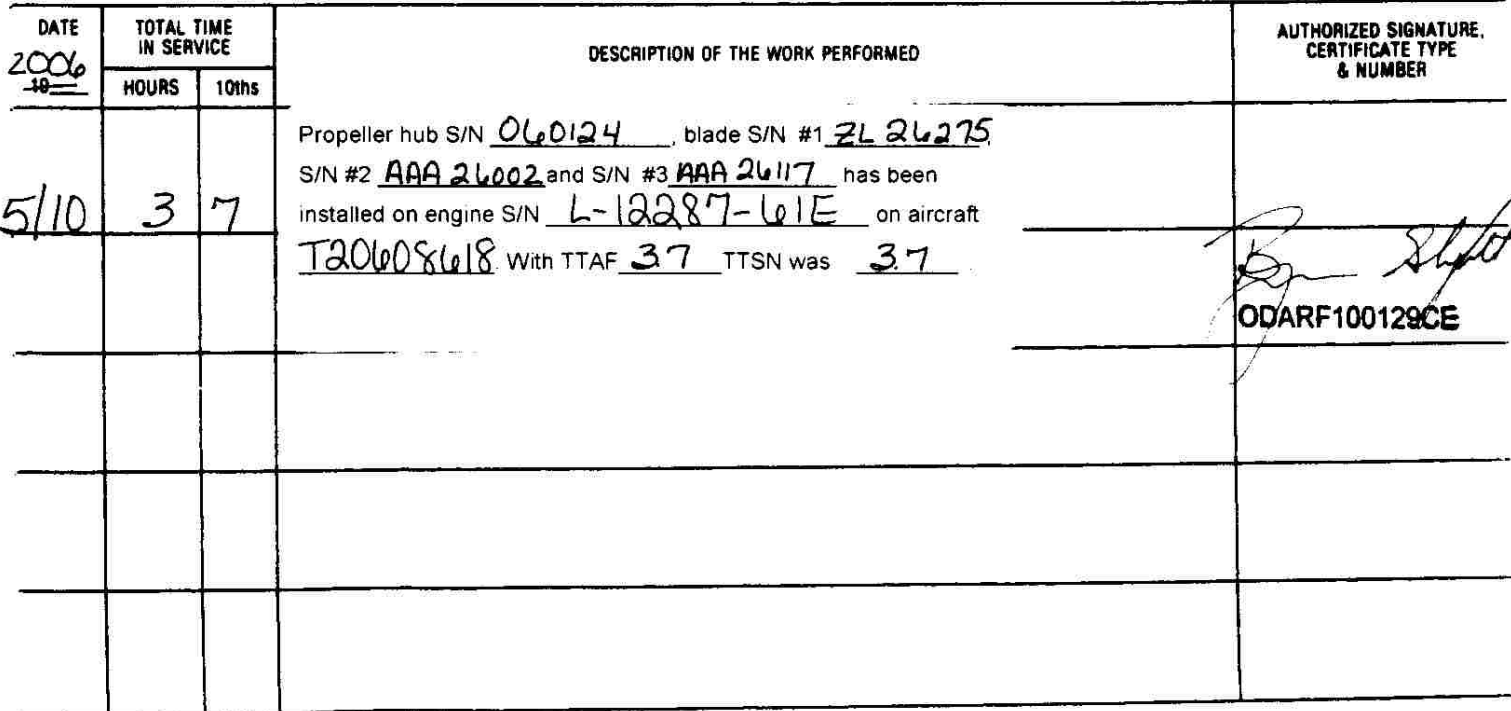 DATE
2006
19
TOTAL TIME
IN SERVICE
HOURS 10ths
DESCRIPTION OF THE WORK PERFORMED
AUTHORIZED SIGNATURE,
CERTIFICATE TYPE
& NUMBER
5/10 3 7
Propeller hub S/N 060124, blade S/N #1 ZL 26275,
S/N #2 AAA 26002 and S/N #3 AAA 26117 has been
installed on engine S/N L-12287-61E on aircraft
T20608618. With TTAF 3.7 TTSN was 3.7
ODARF100129CE